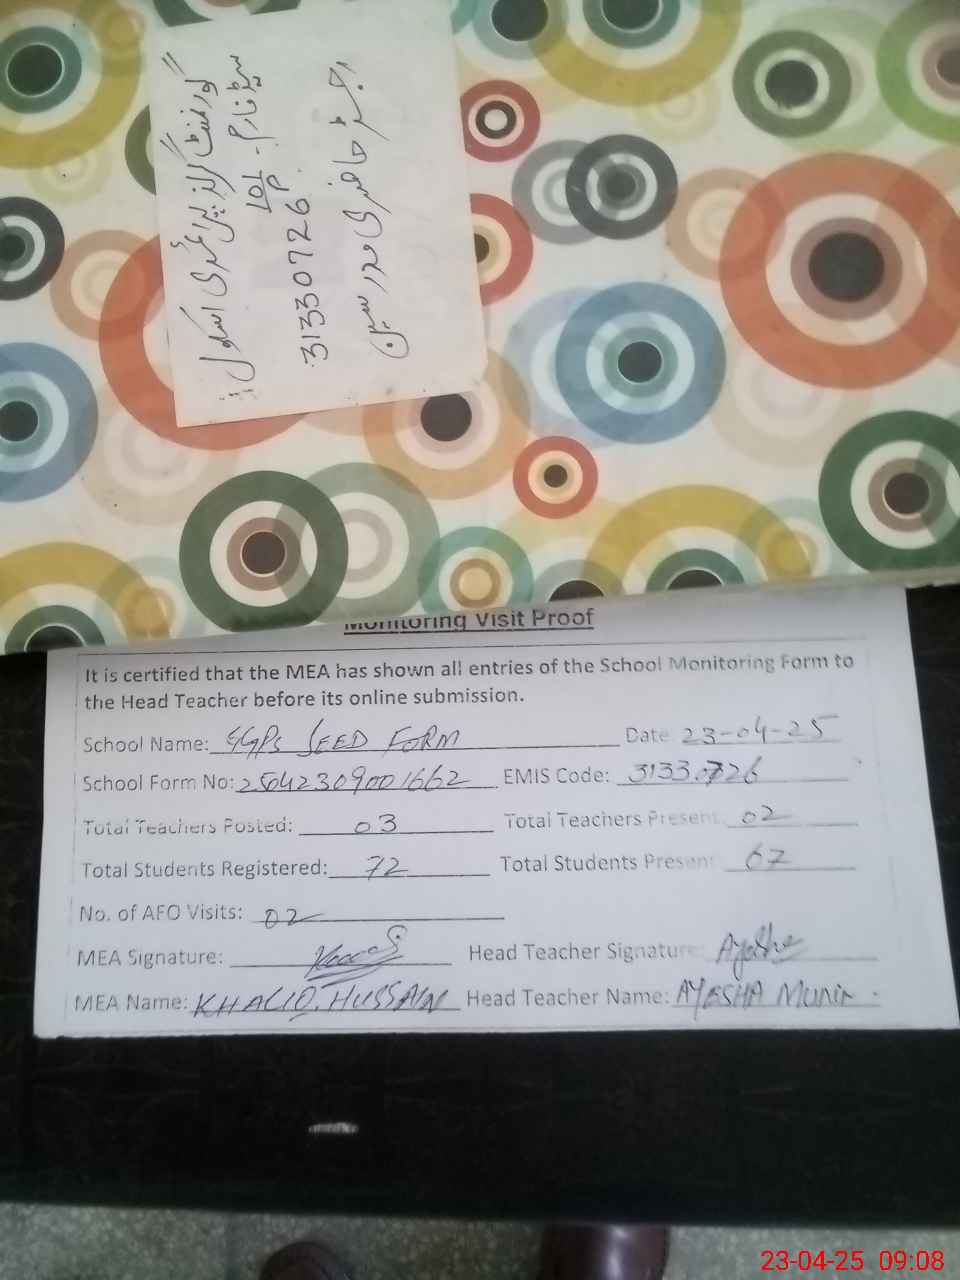 گورنمنٹ گرلز پرائمری اسکول
سیڈ فارم 101/P
31330726
رجسٹر حاضری مدرسین
Monitoring Visit Proof
It is certified that the MEA has shown all entries of the School Monitoring Form to
the Head Teacher before its online submission.
School Name: GGPS SEED FORM Date 23-04-25
School Form No: 25042309001662 EMIS Code: 31330726
Total Teachers Posted: 03 Total Teachers Present: 02
Total Students Registered: 72 Total Students Present: 67
No. of AEO Visits: 02
MEA Signature: Head Teacher Signature: Ayesha
MEA Name: KHALID HUSSAIN Head Teacher Name: AYESHA MUNIR
23-04-25 09:08